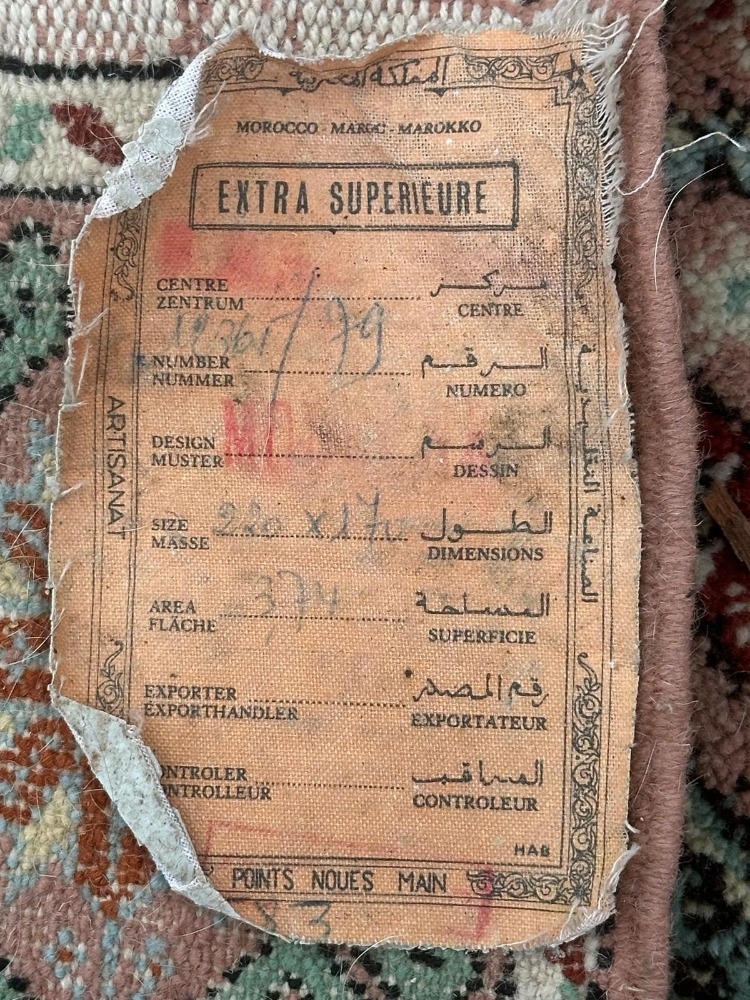 المملكة المغربية
MOROCCO - MAROC - MAROKKO
EXTRA SUPERIEURE
CENTRE مركز
ZENTRUM CENTRE
/79
NUMBER الرقم
NUMMER NUMERO
DESIGN الرسم
MUSTER DESSIN
SIZE 220 x 170 الطول
MASSE DIMENSIONS
AREA 374 المساحة
FLÄCHE SUPERFICIE
EXPORTER رقم المصدر
EXPORTHANDLER EXPORTATEUR
ONTROLER المراقب
ONTROLLEUR CONTROLEUR
HAB
POINTS NOUES MAIN
ARTISANAT
الصناعة التقليدية